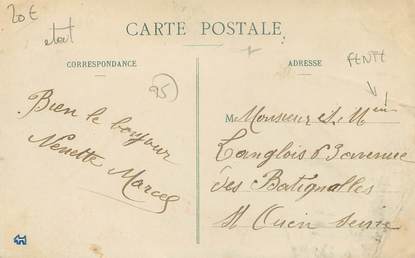 20€
etat
CARTE POSTALE
FENTE
CORRESPONDANCE
ADRESSE
95
Bien le bonjour
Nenette Marcel
M Monsieur et Mme
Langlois 63 avenue
des Batignalles
St Ouen Seine